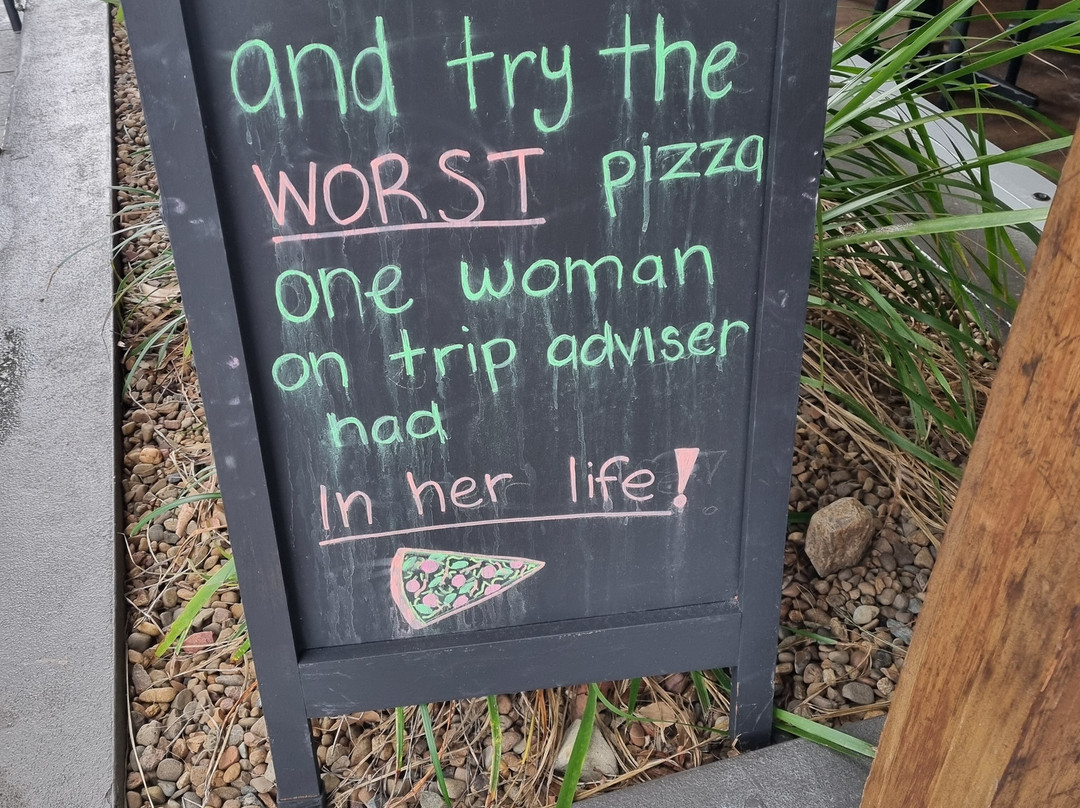 and try the
WORST pizza
one woman
on trip adviser
had
In her life!